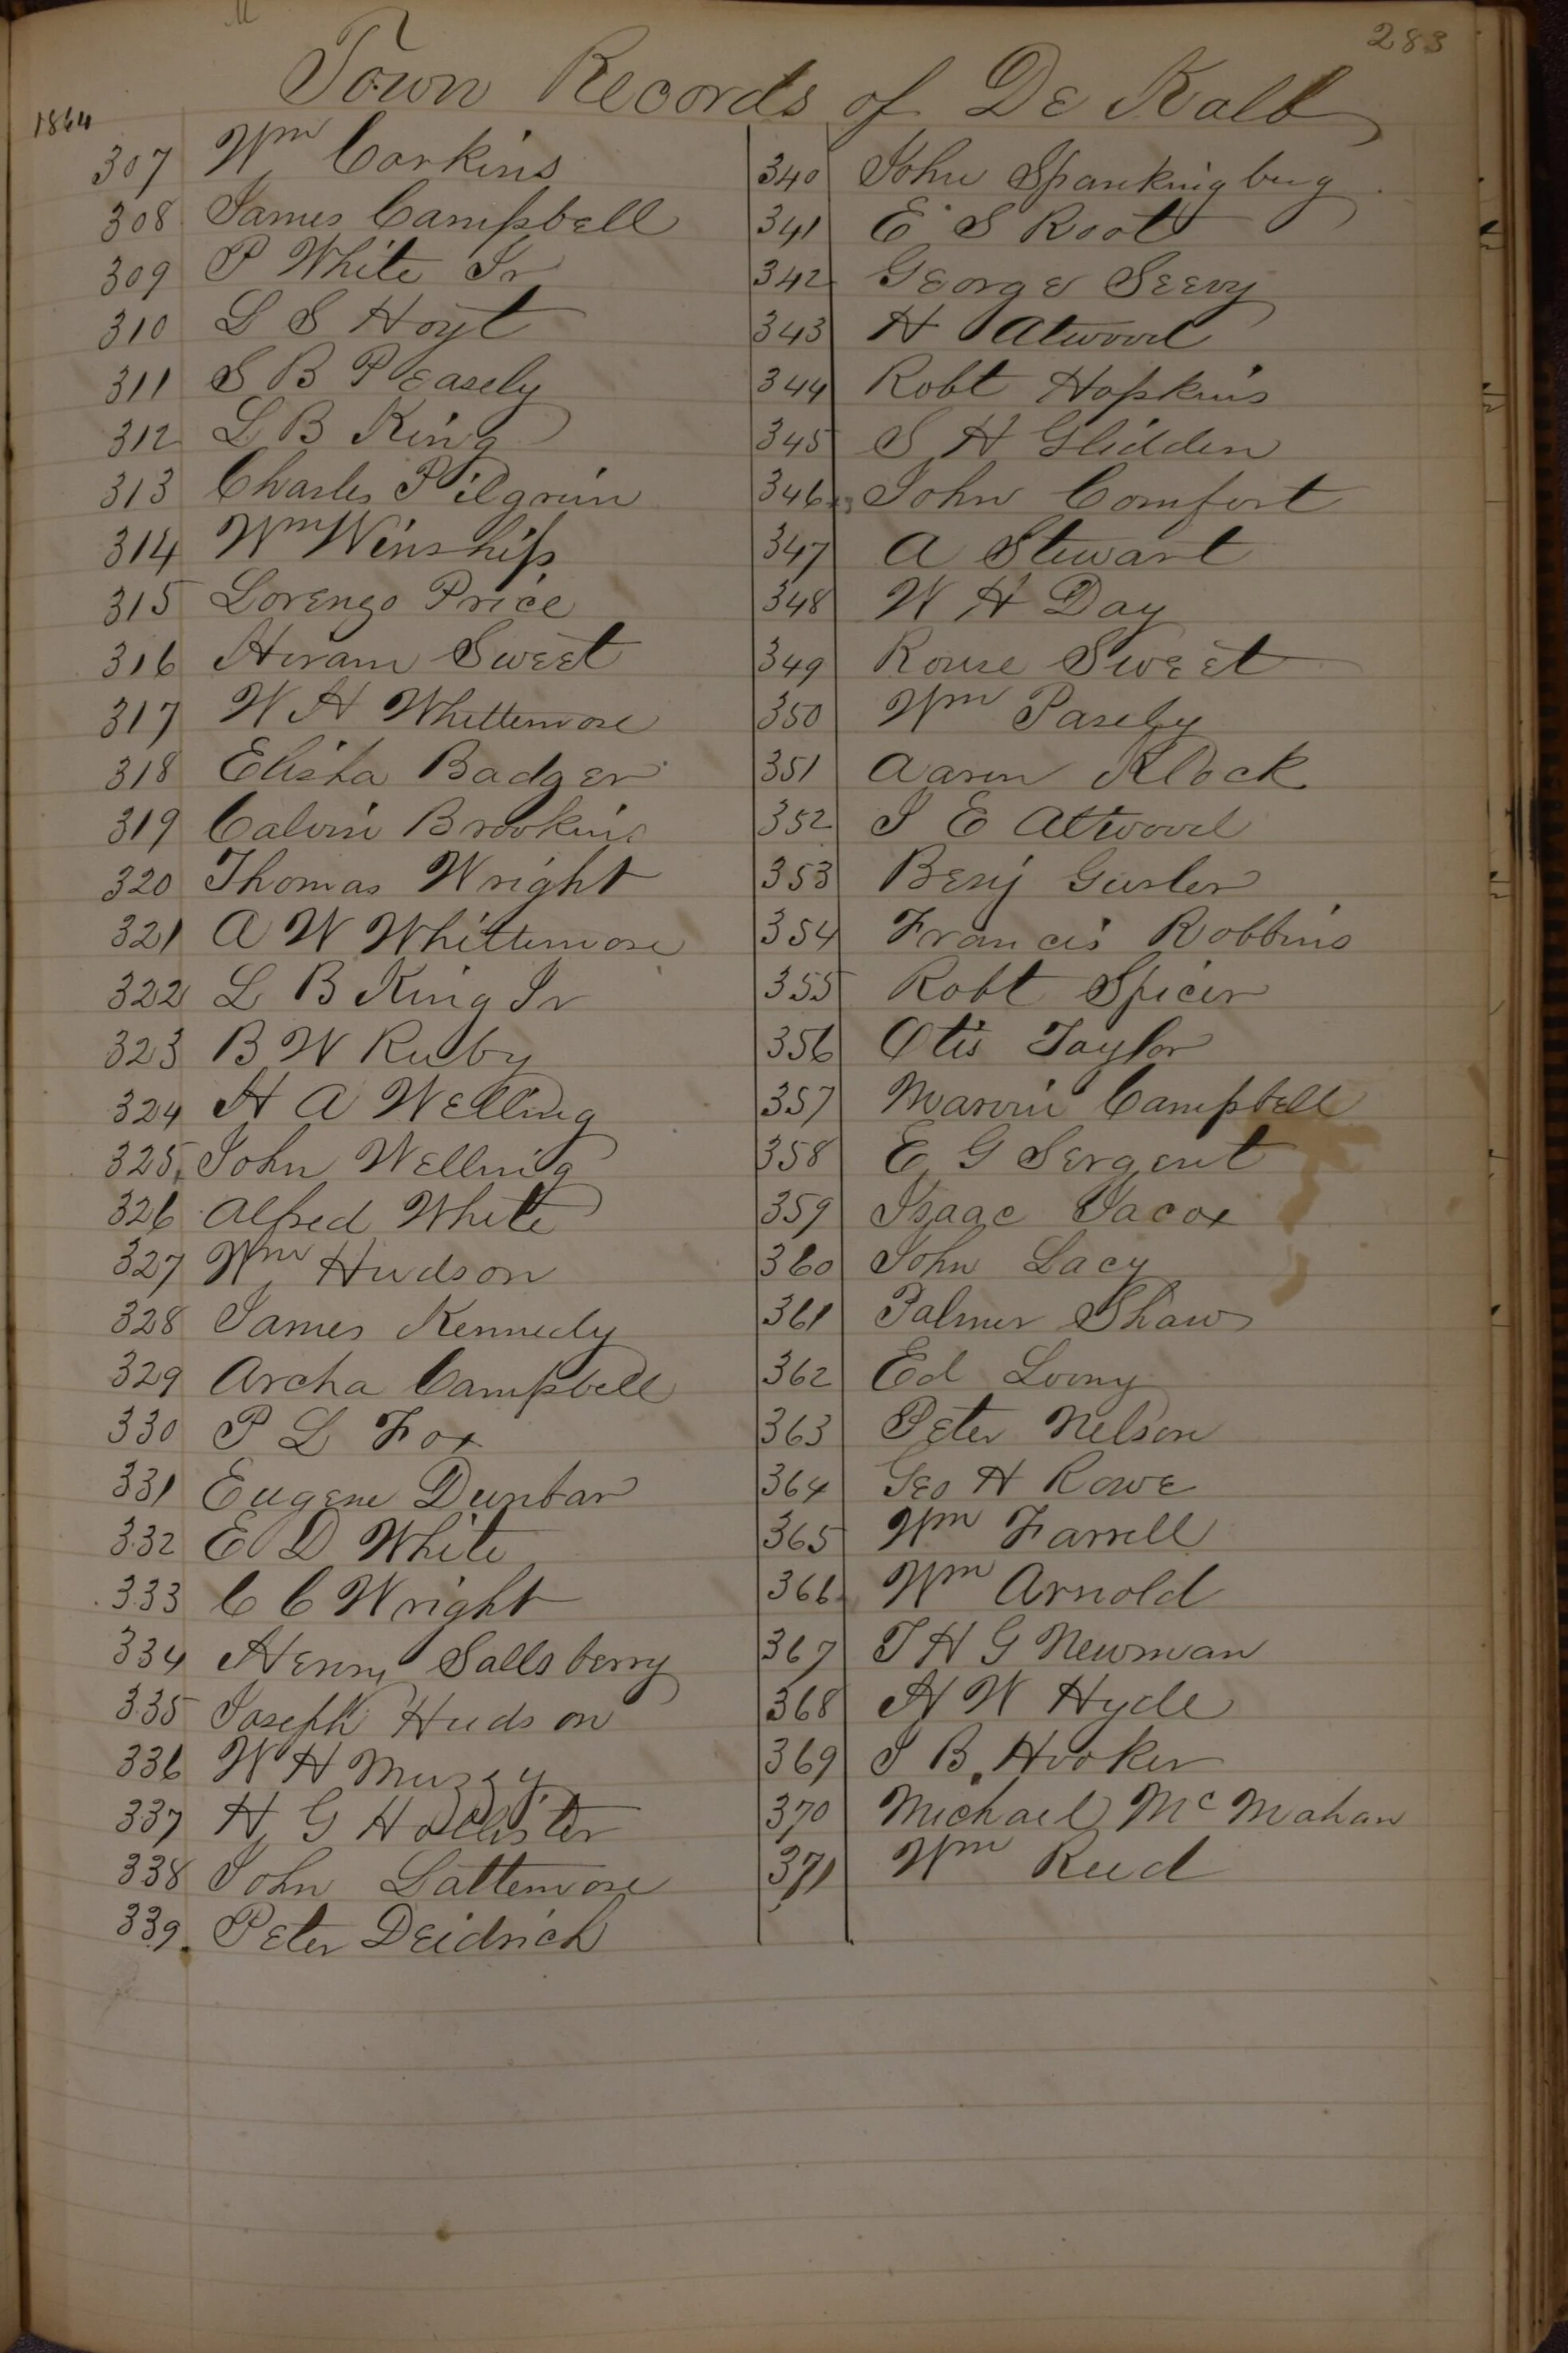 283
Town Records of De Kalb
1864
307 Wm Corkins
308 James Campbell
309 P White Jr
310 L S Hoyt
311 S B Peasely
312 L B King
313 Charles Pilgrim
314 Wm Winship
315 Lorenzo Price
316 Hiram Sweet
317 W H Whittemore
318 Elisha Badger
319 Calvin Brookins
320 Thomas Wright
321 A W Whittemore
322 L B King Jr
323 B W Ruby
324 H A Welling
325 John Welling
326 Alfred White
327 Wm Hudson
328 James Kennedy
329 Archa Campbell
330 P L Fox
331 Eugene Dunbar
332 E D White
333 C C Wright
334 Henry Sallsberry
335 Joseph Hudson
336 W H Muzzy
337 H G Hollister
338 John Lattemore
339. Peter Deidrich
340 John Spankingbug
341 E S Root
342 George Seevy
343 H Atwood
344 Robt Hopkins
345 S H Glidden
346 John Comfort
347 A Stewart
348 W H Day
349 Rouse Sweet
350 Wm Pasely
351 Aaron Klock
352 J E Attwood
353 Benj Gurler
354 Francis Robbins
355 Robt Spicer
356 Otis Taylor
357 Marvin Campbell
358 E G Sergent
359 Isaac Jacox
360 John Lacy
361 Palmer Shaw
362 Ed Loony
363 Peter Nelson
364 Geo H Rowe
365 Wm Farrell
366 Wm Arnold
367 T H G Newman
368 H W Hyde
369 J B Hooker
370 Michael McMahan
371 Wm Reed